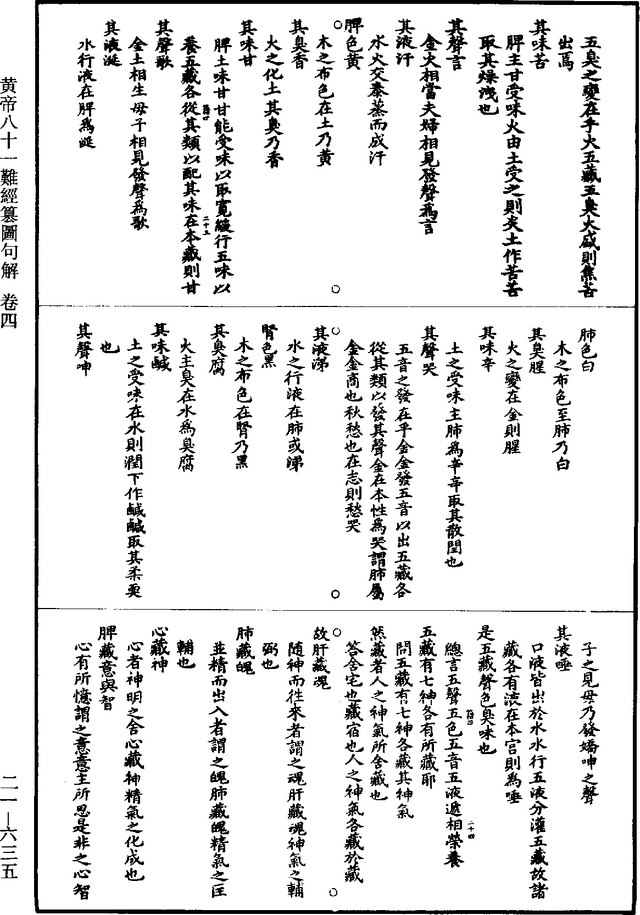 五臭之變在乎火五藏五臭火盛則焦苦
出焉
其味苦
脾主甘受味火由土受之則炎土作苦苦
取其燥洩也
其聲言
金火相當夫婦相見發聲為言
其液汗
水火交泰蒸而成汗
脾色黄
木之布色在土乃黄
其臭香
火之化土其臭乃香
其味甘
脾土味甘甘能受味以取寛緩行五味以
養五藏各從其類以配其味在本藏則甘
其聲歌
金土相生母子相見發聲為歌
其液涎
水行液在脾為涎
肺色白
木之布色至肺乃白
其臭腥
火之變在金則腥
其味辛
土之受味主肺為辛辛取其散閏也
其聲哭
五音之發在乎金金發五音以出五藏各
從其類以發其聲金在本性為哭謂肺屬
金金商也秋愁也在志則愁哭
其液涕
水之行液在肺或涕
腎色黑
木之布色在腎乃黑
其臭腐
火主臭在水為臭腐
其味鹹
土之受味在水則潤下作鹹鹹取其柔耎
也
其聲呻
子之見母乃發嬌呻之聲
其液唾
口液皆出於水水行五液分灌五藏故諸
藏各有液在本宫則為唾
是五藏聲色臭味也
總言五聲五色五音五液遞相榮養
五藏有七神各有所藏耶
問五藏有七神各藏其神氣
然藏者人之神氣所舍藏也
答舍宅也藏宿也人之神氣各藏於藏
故肝藏魂
随神而往來者謂之魂肝藏魂神氣之輔
弼也
肺藏魄
並精而出入者謂之魄肺藏魄精氣之匡
輔也
心藏神
心者神明之舍心藏神精氣之化成也
脾藏意與智
心有所憶謂之意意主所思是非之心智
黄帝八十一難經纂圖句解 卷四
二一—六三五